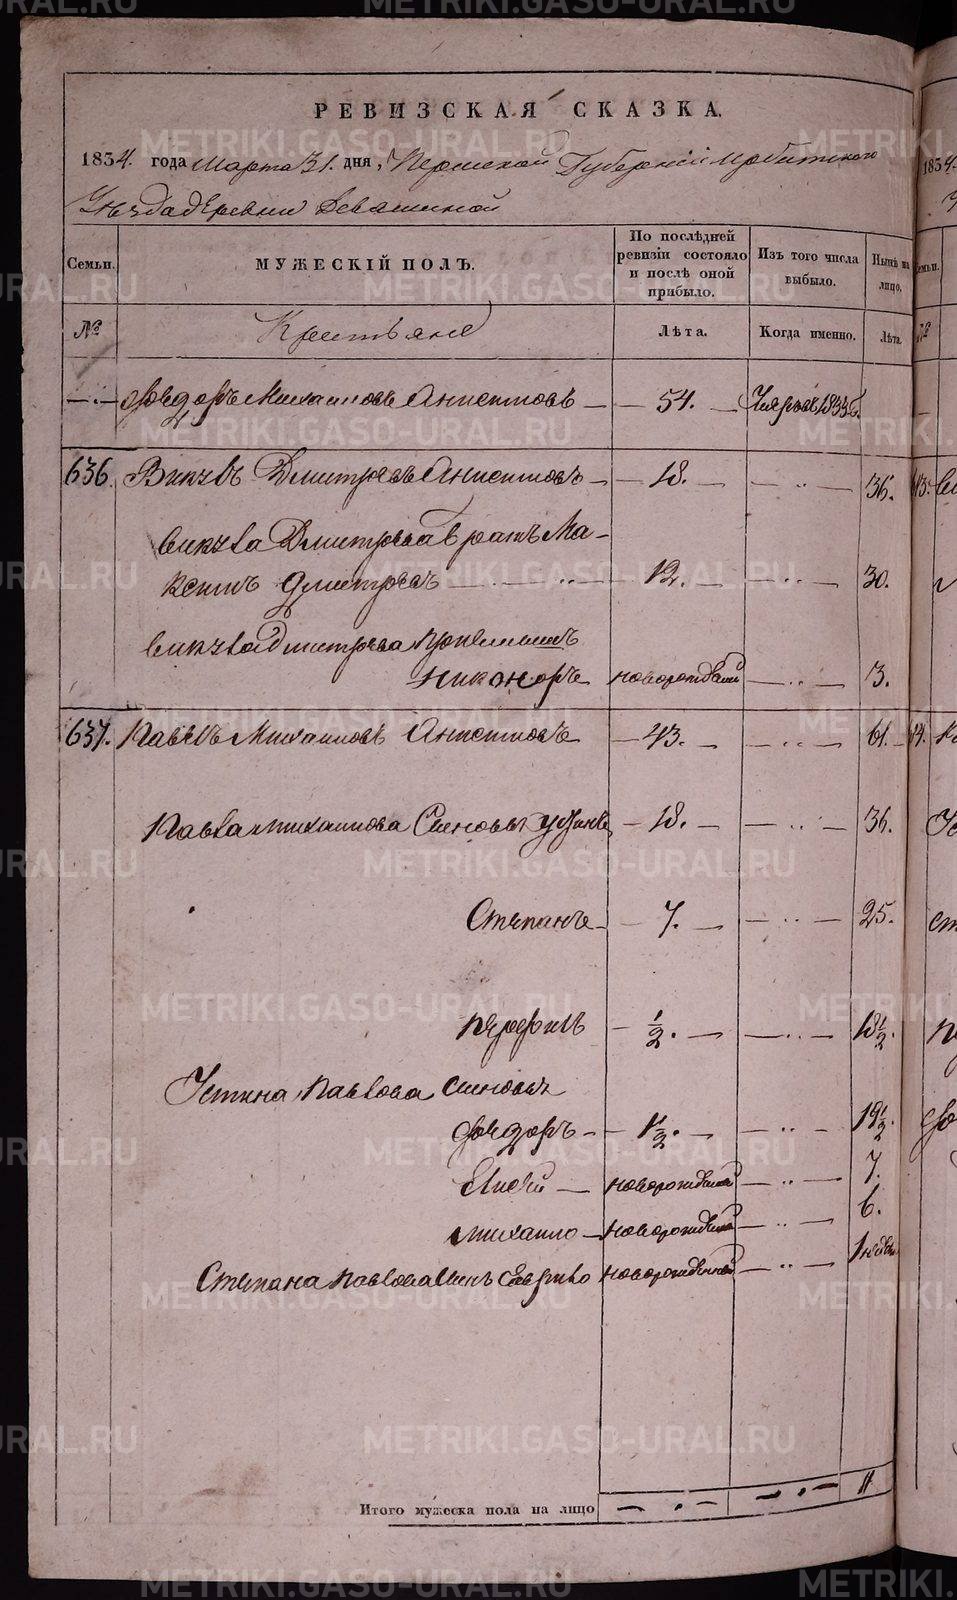 РЕВИЗСКАЯ СКАЗКА.
1834. года Марта 31. дня, Пермской Губернии Ирбитского
Уезда деревни Девашиной
Семьи. МУЖЕСКІЙ ПОЛЪ. По послѣдней ревизіи состояло и послѣ оной прибыло. Изъ того числа выбыло. Нынѣ на лицо.
№ Крестьяне Лѣта. Когда именно. Лѣта.
Федоръ Михаиловъ Анисимовъ 54. 1833
636. Дмитревъ Анисимовъ 18. 36.
Дмитрева братъ Ма-
ксимъ Дмитревъ 12. 30.
Дмитрева
Никоноръ новорожденный 3.
637. Павелъ Михаиловъ Анисимовъ 43. 61.
Павла Михаилова Сыновья Устинъ 18. 36.
Степанъ 7. 25.
Перфилъ 1/2. 18 1/2.
Устина Павлова сыновья
Федоръ 1 1/2. 19 1/2.
новорожденный 7.
Михаило новорожденный 6.
Степана Павлова сынъ новорожденный 1 недѣл
Итого мужеска пола на лицо 11
METRIKI.GASO-URAL.RU